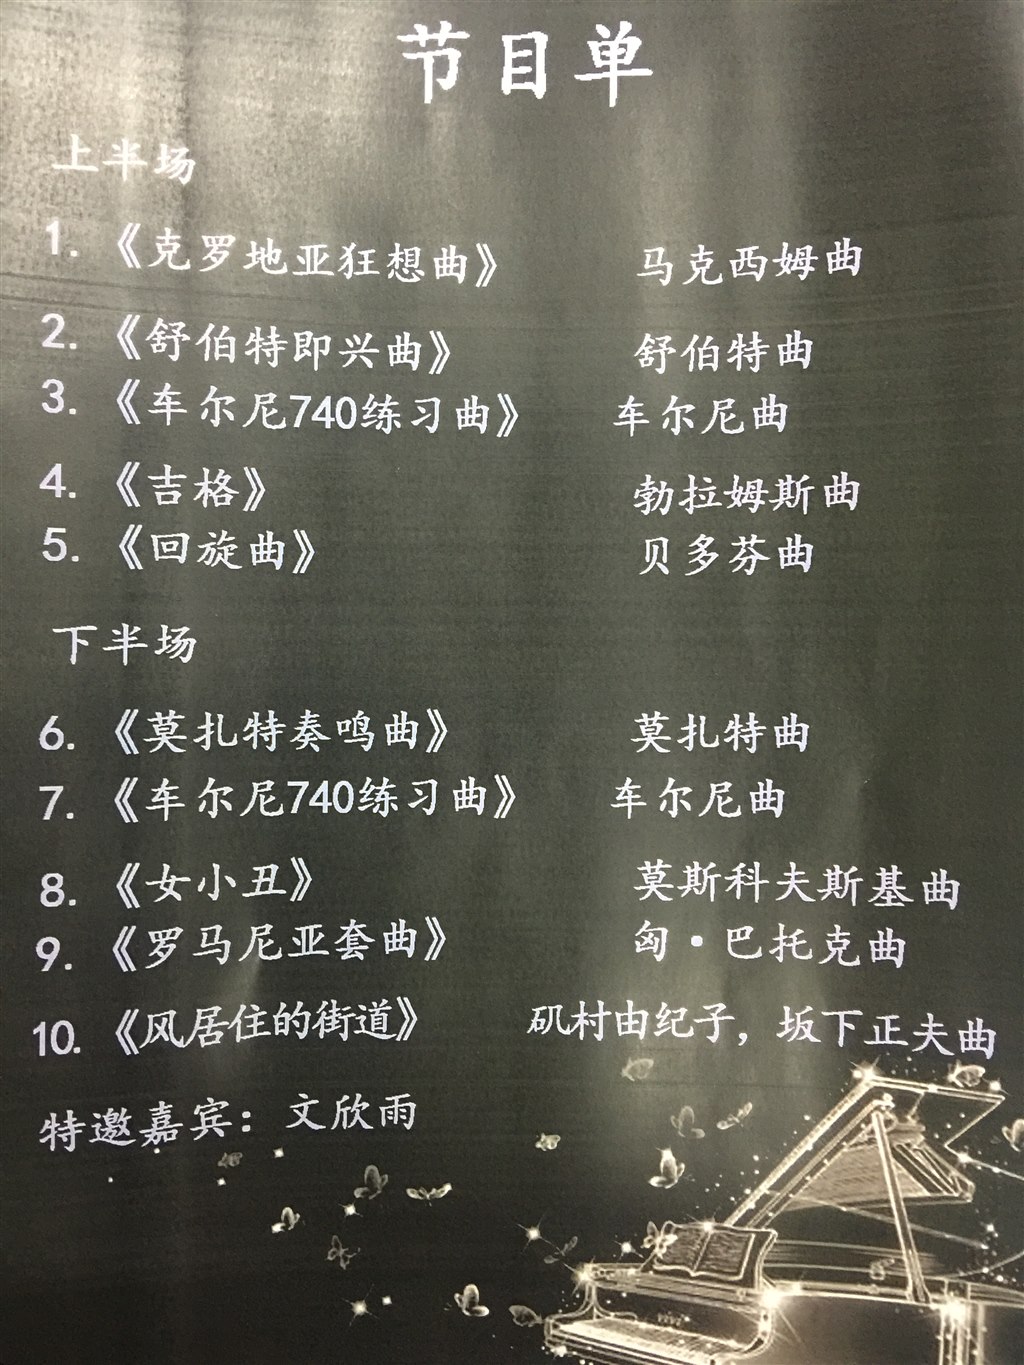 节目单
上半场
1. 《克罗地亚狂想曲》 马克西姆曲
2. 《舒伯特即兴曲》 舒伯特曲
3. 《车尔尼740练习曲》 车尔尼曲
4. 《吉格》 勃拉姆斯曲
5. 《回旋曲》 贝多芬曲
下半场
6. 《莫扎特奏鸣曲》 莫扎特曲
7. 《车尔尼740练习曲》 车尔尼曲
8. 《女小丑》 莫斯科夫斯基曲
9. 《罗马尼亚套曲》 匈·巴托克曲
10. 《风居住的街道》 矶村由纪子，坂下正夫曲
特邀嘉宾：文欣雨